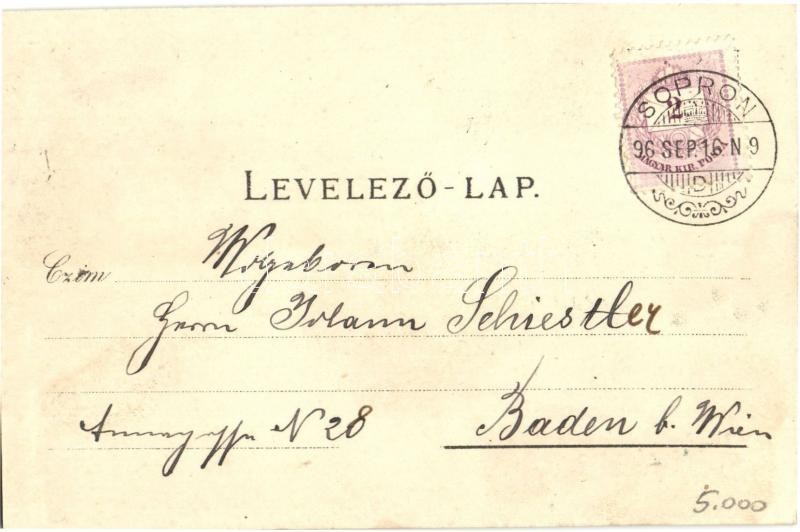 SOPRON
2
96 SEP. 16 N 9
MAGYAR KIR. POSTA
D
LEVELEZŐ-LAP.
Czím Wolgeboren
Herrn Johann Schiestler
Annagasse N 28 Baden b. Wien
5.000